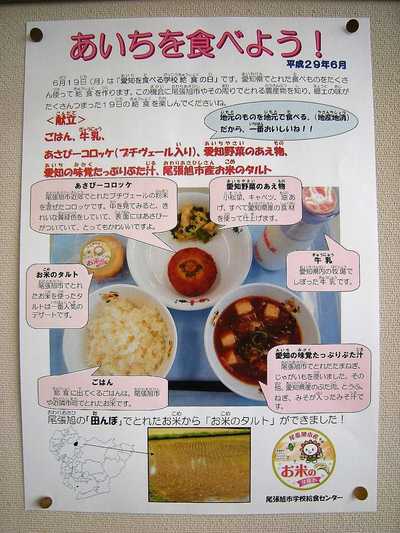 あいちを食べよう！
平成29年6月
6月19日（月）は「愛知を食べる学校給食の日」です。愛知県でとれた食べものをたくさん使って給食を作ります。この機会に尾張旭市やその周りでとれる農産物を知り、郷土の味がたくさんつまった19日の給食を楽しんでくださいね。
＜献立＞
ごはん、牛乳、
あさぴーコロッケ（プチヴェール入り）、愛知野菜のあえ物、
愛知の味覚たっぷりぶた汁、尾張旭市産お米のタルト
地元のものを地元で食べる。（地産地消）
だから、一番おいしいね！！
あさぴーコロッケ
尾張旭市近隣でとれたプチヴェールの粉末
を混ぜたコロッケです。中を見てみると、き
れいな黄緑色をしていて、表面にはあさぴー
がついていて、とってもかわいいですよ。
愛知野菜のあえ物
小松菜、キャベツ、油あ
げ、すべて愛知県産の食材
を使って仕上げます。
お米のタルト
尾張旭市でとれ
たお米を使ったタ
ルトは一番人気の
デザートです。
牛乳
愛知県内の牧場で
しぼった牛乳です。
ごはん
給食に出てくるごはんは、尾張旭市
や近隣市町でとれたお米です。
愛知の味覚たっぷりぶた汁
尾張旭市でとれたたまねぎ、
じゃがいもを使いました。その
他、愛知県産のぶた肉、とうふ、
ねぎ、みそが入ったみそ汁で
す。
尾張旭の「田んぼ」でとれたお米から「お米のタルト」ができました！
尾張旭市産
お米の
尾張旭市学校給食センター